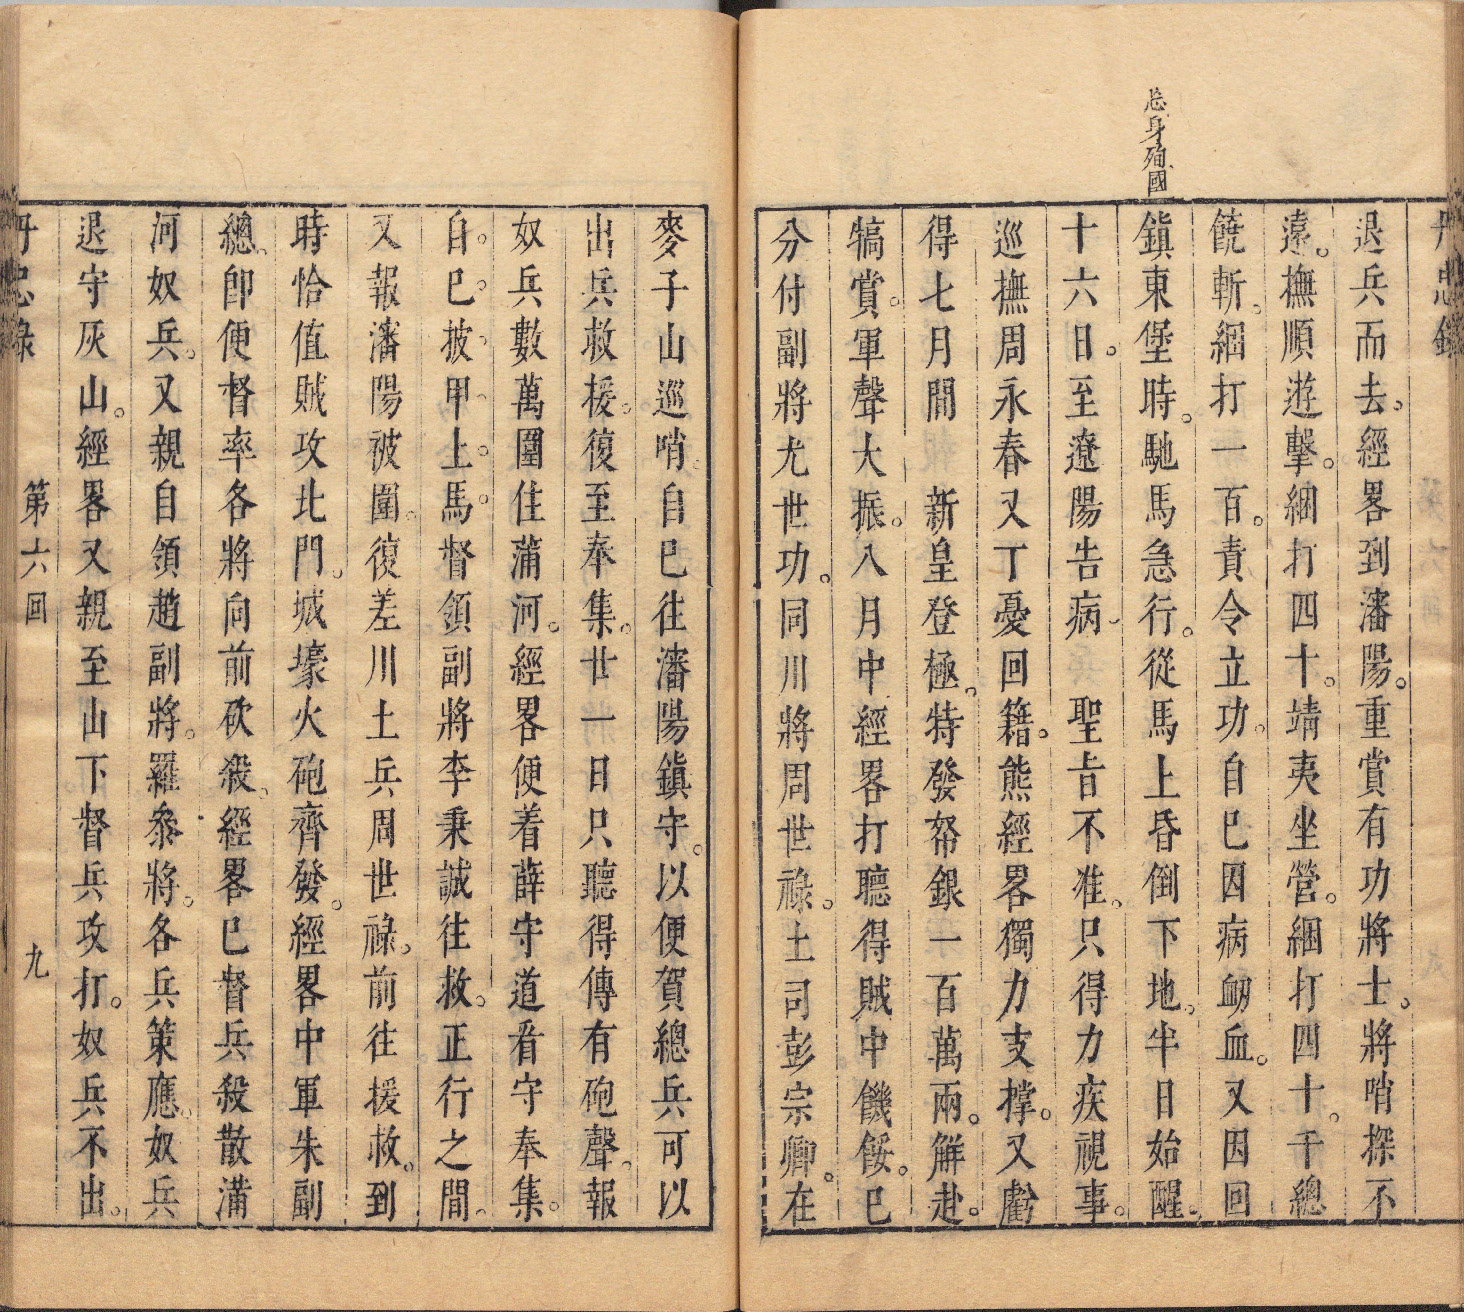 丹忠錄
忘身殉國
退兵而去。經畧到瀋陽。重賞有功將士。將哨探不
遠。撫順遊擊。綑打四十。靖夷坐營。綑打四十。千總
饒斬。綑打一百。責令立功。自已因病衂血。又因回
鎮東堡時。馳馬急行。從馬上昏倒下地。半日始醒。
十六日。至遼陽告病、聖旨不准。只得力疾視事。
巡撫周永春又丁憂回籍。熊經畧獨力支撐。又虧
得七月間 新皇登極。特發帑銀一百萬兩。觧赴。
犒賞。軍聲大振。八月中經畧打聽得賊中饑餒。已
分付副將尤世功。同川將周世祿。土司彭宗卿。在
麥子山巡哨。自已往瀋陽鎮守。以便賀總兵可以
出兵救援。復至奉集。廿一日只聽得傳有砲聲。報
奴兵數萬圍住蒲河。經畧便着薛守道看守奉集。
自。已。披、甲、上。馬。督領副將李秉誠往救。正行之間。
又報瀋陽被圍。復差川土兵周世祿。前往援救。到
時恰值賊攻北門。城壕火砲齊發。經畧中軍朱副
總。卽便督率各將向前砍殺。經畧已督兵殺散蒲
河奴兵。又親自領趙副將。羅叅將。各兵策應。奴兵
退守灰山。經畧又親至山下督兵攻打。奴兵不出。
丹忠錄
第六回
九